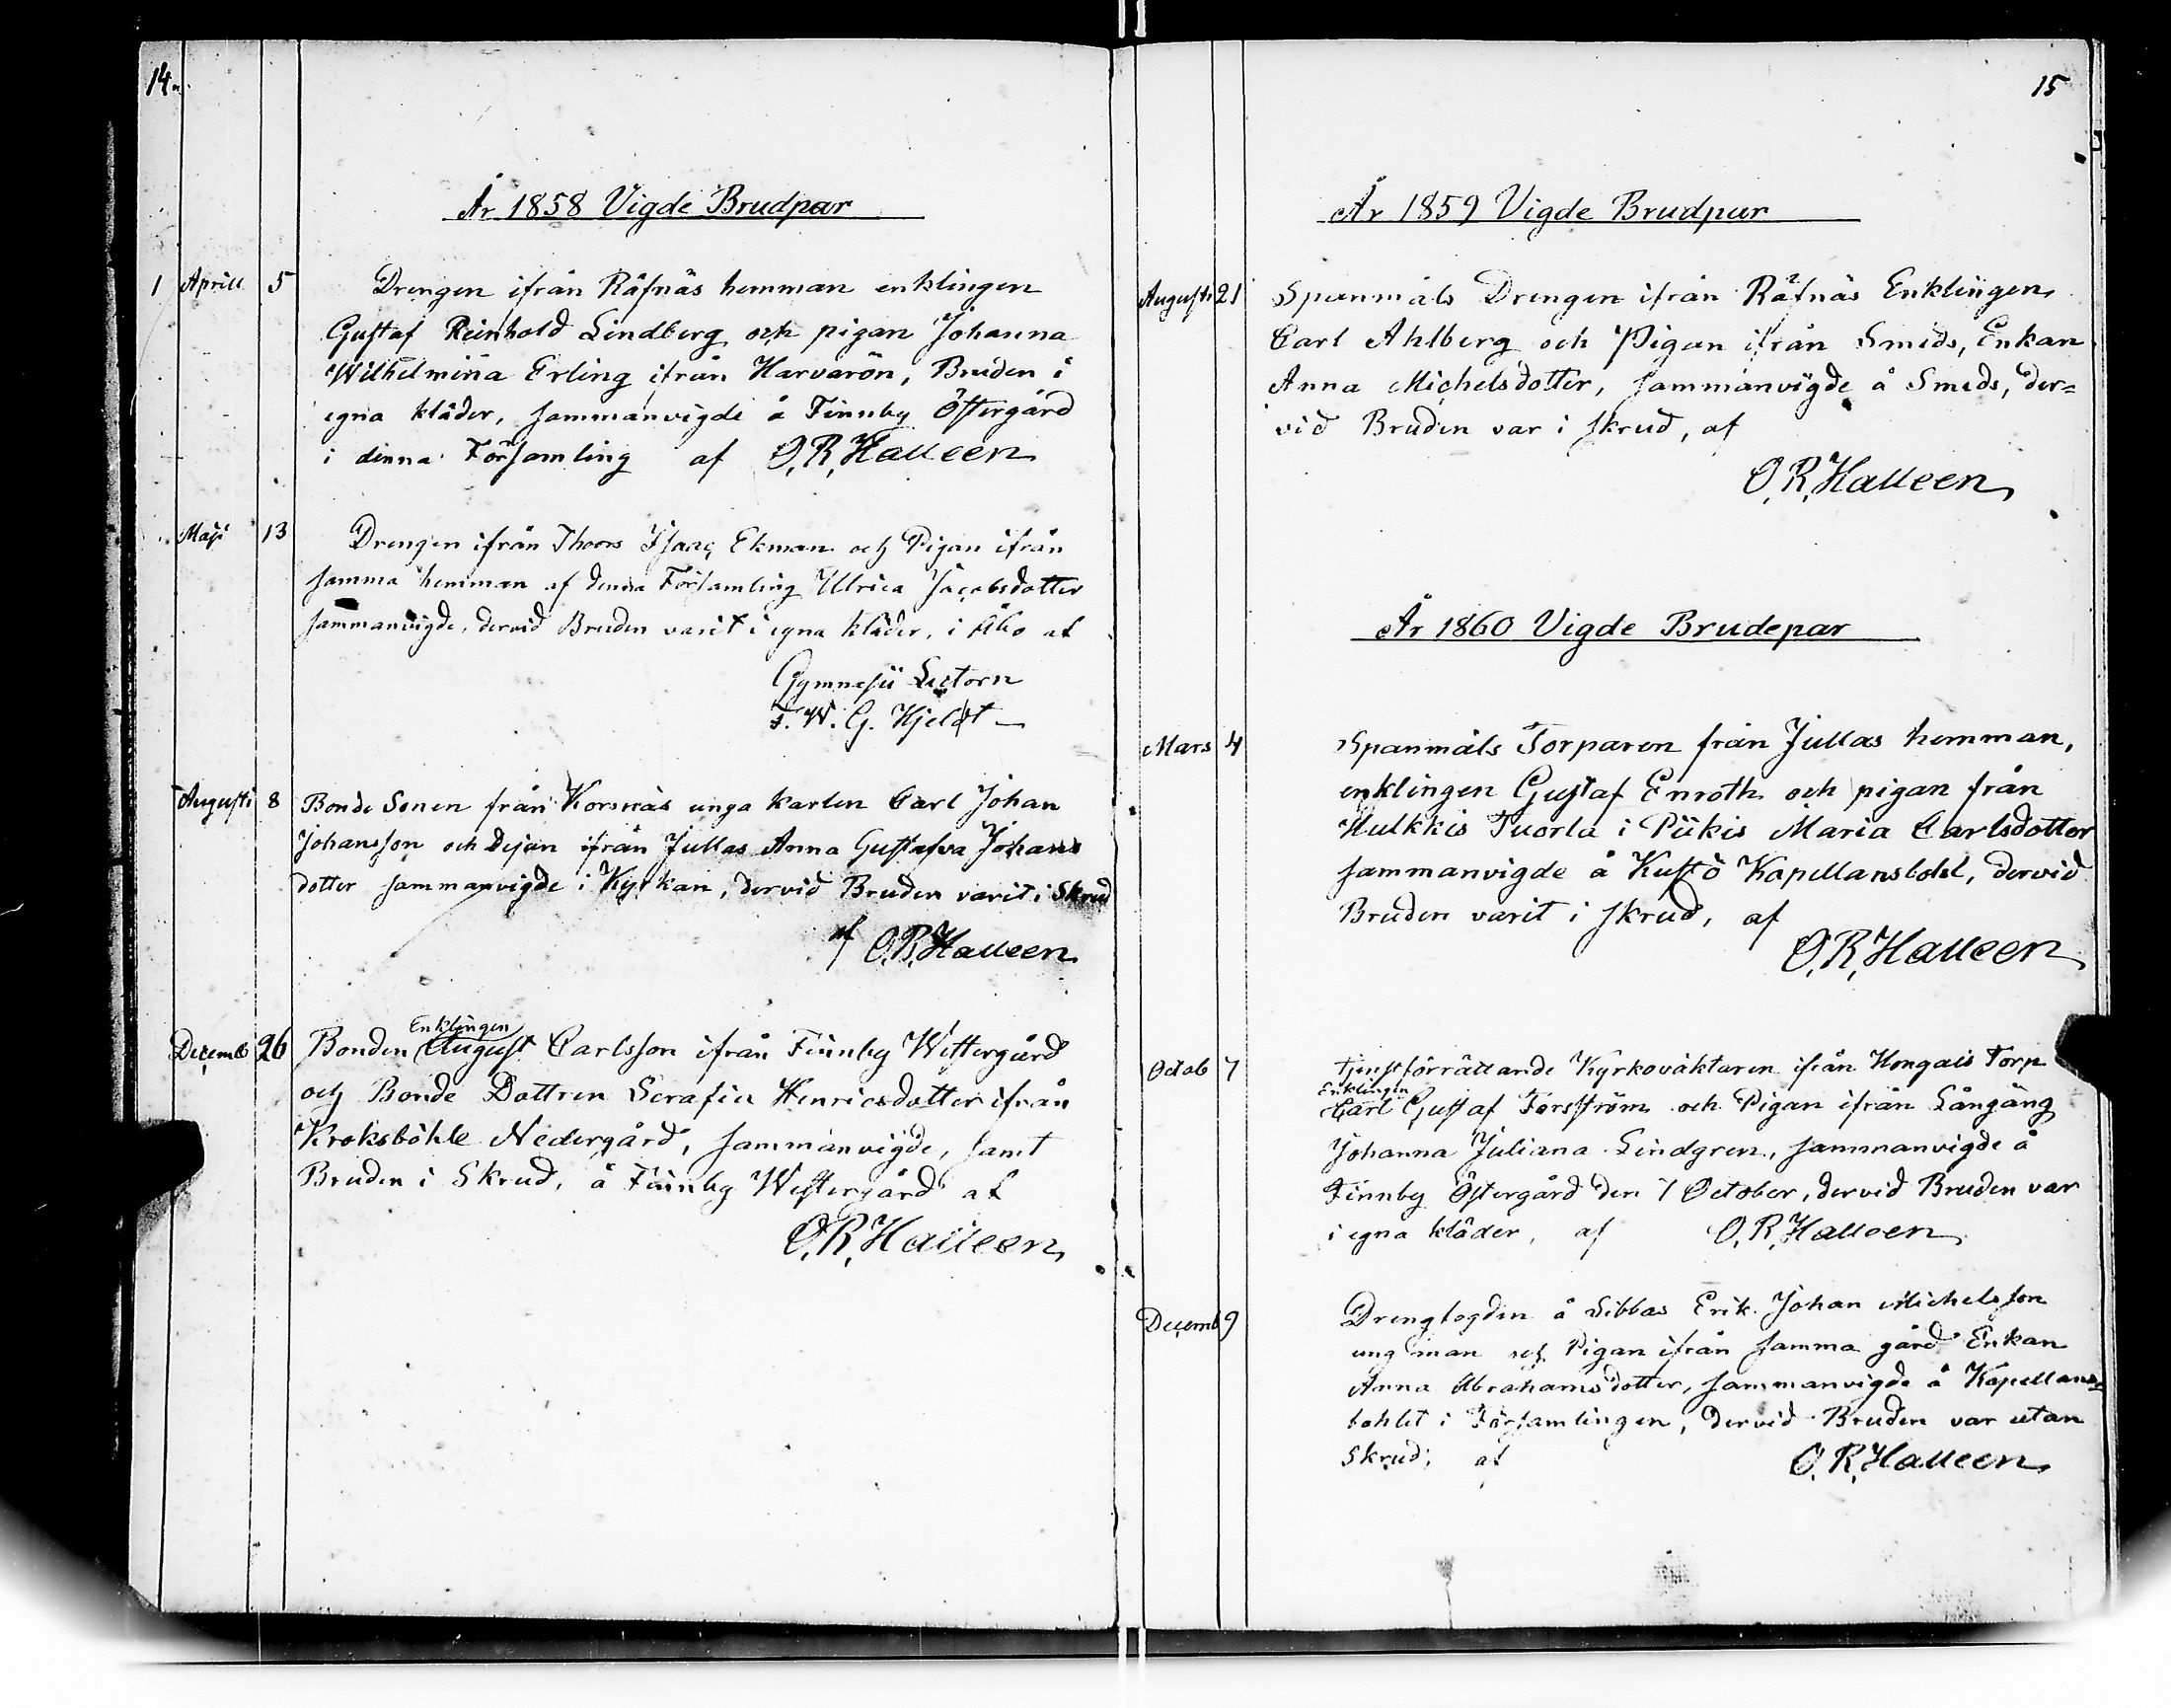 14.
År 1858 Vigde Brudpar
1 Aprill 5 Drengen ifrån Räfnäs hemman enklingen
Gustaf Reinhold Lindberg och pigan Johanna
Wilhelmina Erling ifrån Harvarön, Bruden i
egna kläder, sammanvigde å Finnby Östergård
i denna Församling af O. R. Halleen
Maji 13 Drengen ifrån Thoors Isaac Ekman och Pigan ifrån
samma hemman af denna Församling Ulrica Jacobsdotter
sammanvigde, dervid Bruden varit i egna kläder, i Åbo af
Gymnasii Lectorn
F. W. G. Hjelt
Augusti 8 Bonde Sonen från Korsnäs unga karlen Carl Johan
Johansson och Dejan ifrån Jullas Anna Gustafva Johans
dotter sammanvigde i Kyrkan, dervid Bruden varit i Skrud
af O. R. Halleen
Enklingen
Decemb 26 Bonden August Carlsson ifrån Finnby Westergård
och Bonde Dottren Serafia Henricsdotter ifrån
Kroksböhle Nedergård, sammanvigde, samt
Bruden i Skrud, å Finnby Westergård af
O. R. Halleen
15
År 1859 Vigde Brudpar
Augusti 21 Spanmåls Drengen ifrån Räfnäs Enklingen
Carl Ahlberg och Pigan ifrån Smeds, Enkan
Anna Michelsdotter, sammanvigde å Smeds, der=
vid Bruden var i skrud, af
O. R. Halleen
År 1860 Vigde Brudepar
Mars 4 Spanmåls Torparen från Jullas hemman,
enklingen Gustaf Enroth och pigan från
Hulkkis Tuorla i Piikis Maria Carlsdotter
sammanvigde å Kustö Kapellansbohl, dervid
Bruden varit i skrud, af
O. R. Halleen
Octob 7 Tjenstförrättande Kyrkoväktaren ifrån Hongais Torp
Enklingen
Carl Gustaf Forsström och Pigan ifrån Långäng
Johanna Juliana Lindgren, sammanvigde å
Finnby Östergård den 7 October, dervid Bruden var
i egna kläder, af O. R. Halleen
Decemb 9 Drenglogden å Sibbas Erik Johan Michelsson
ung man och Pigan ifrån samma gård Enkan
Anna Abrahamsdotter, sammanvigde å Kapellans=
bohlet i Församlingen, dervid Bruden var utan
Skrud, af O. R. Halleen